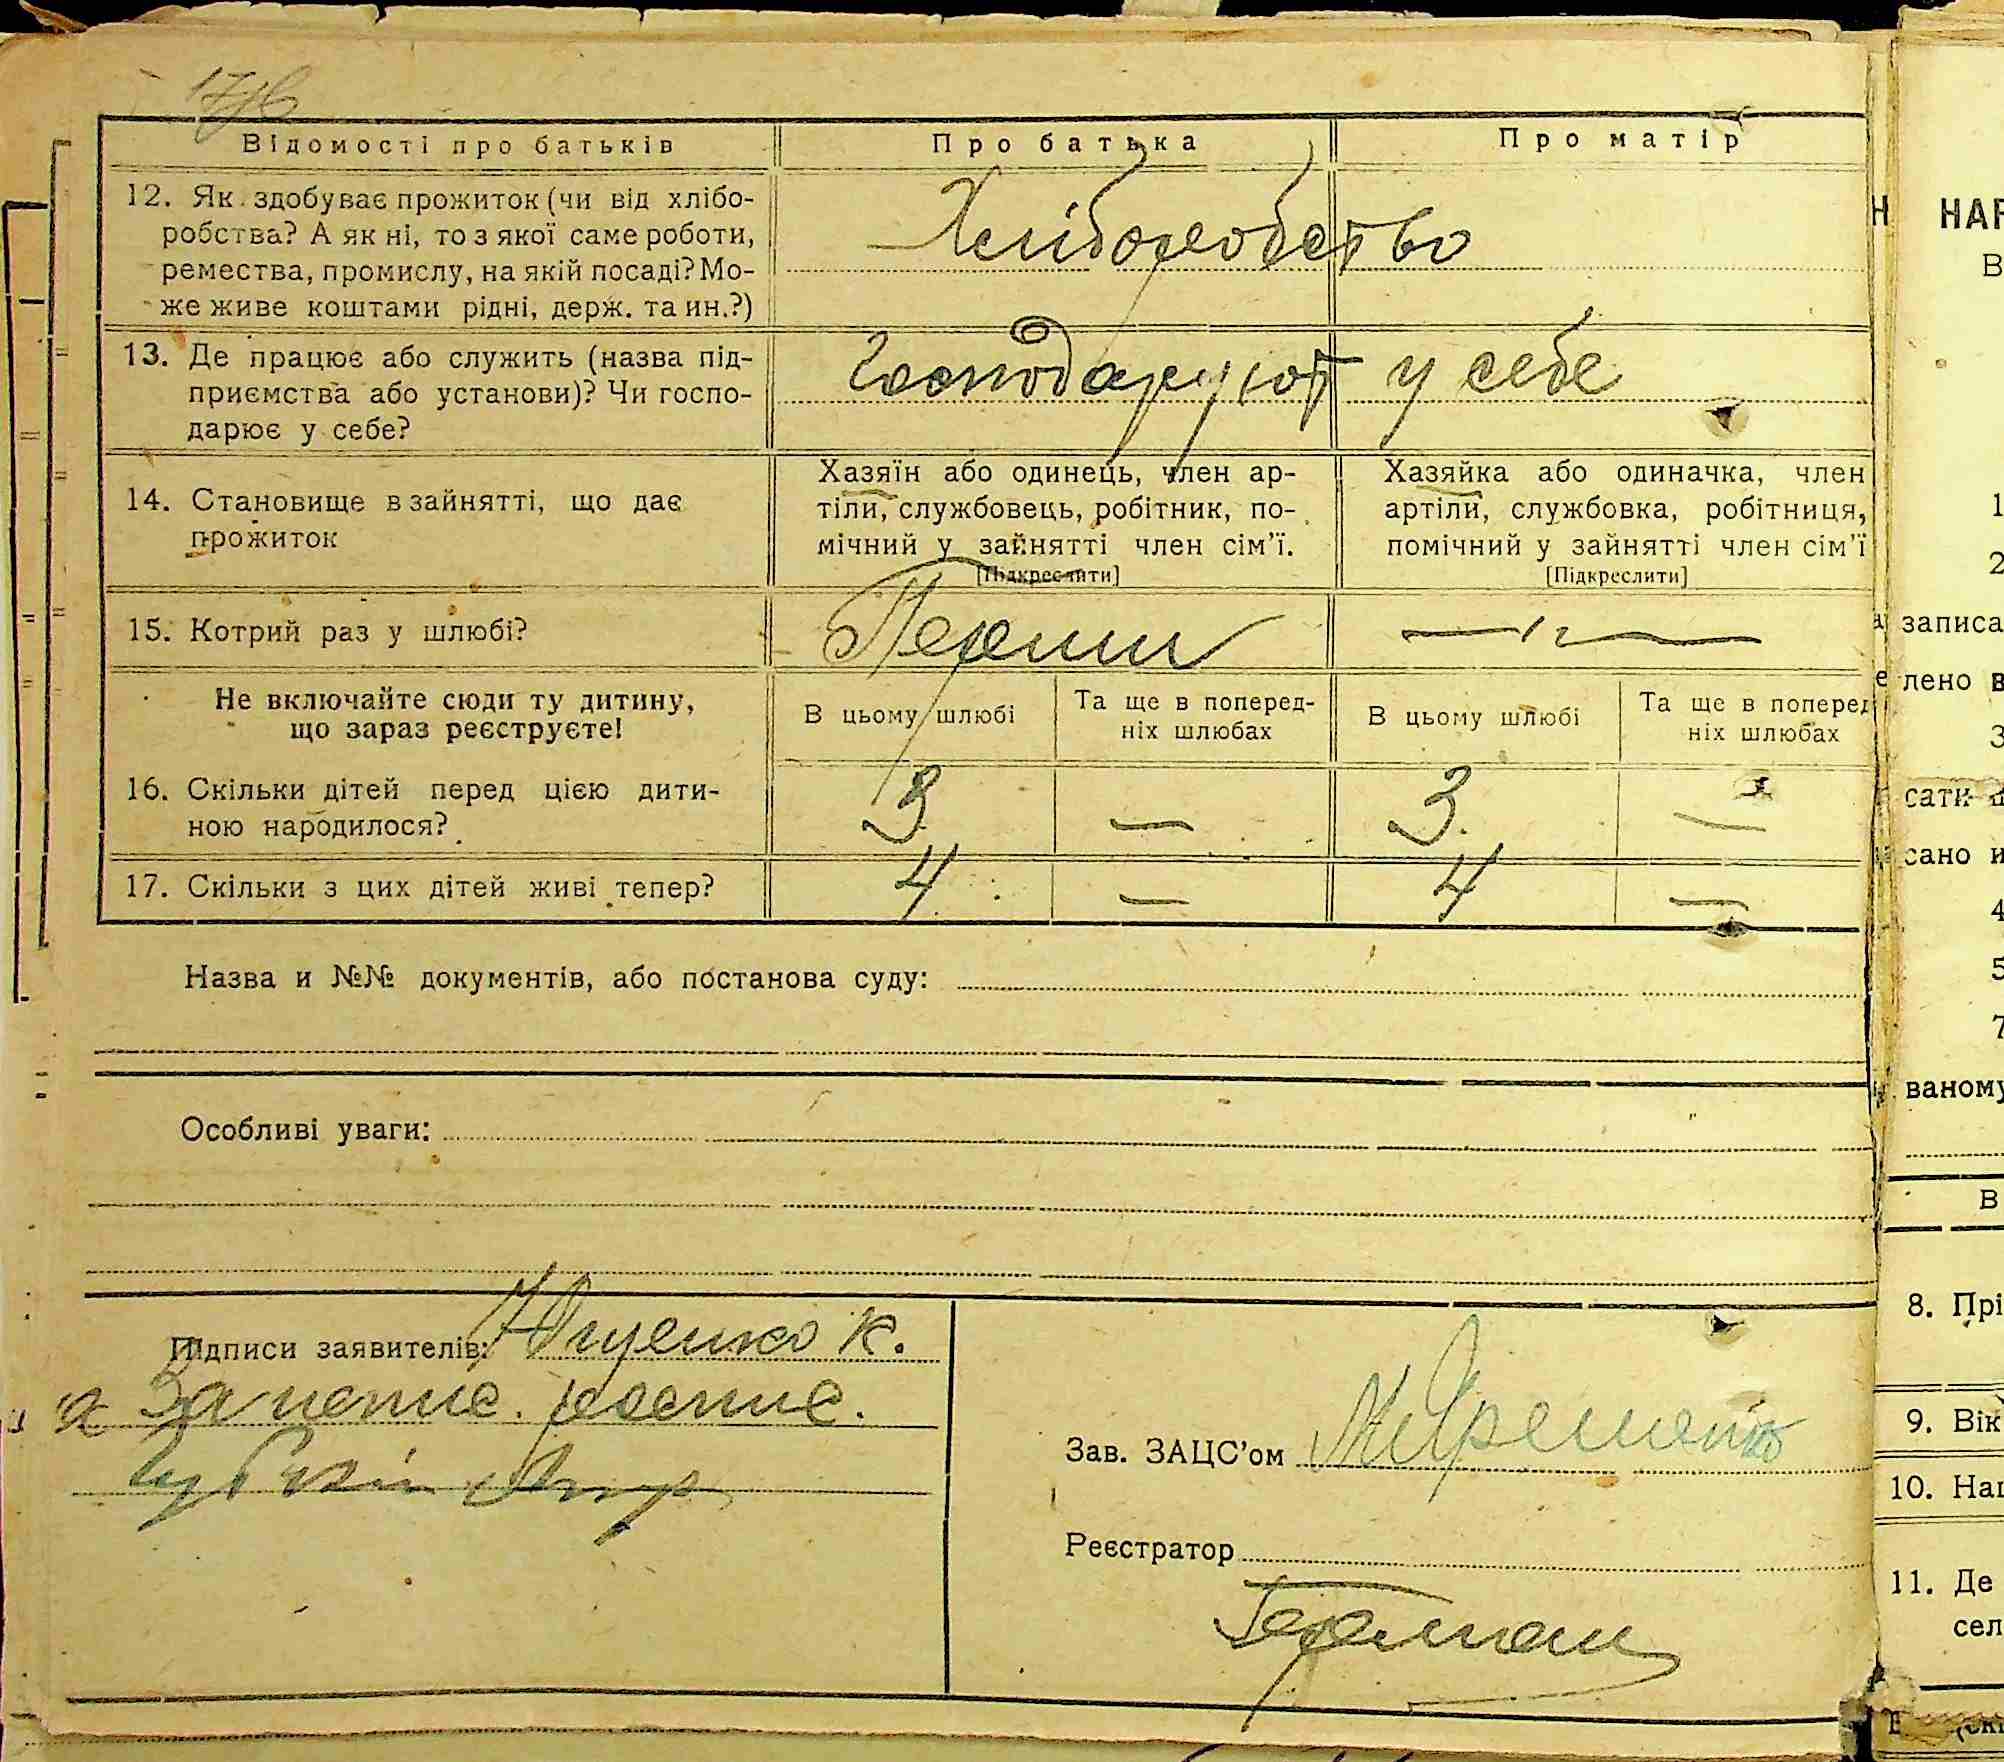 Відомості про батьків Про батька Про матір
12. Як здобуває прожиток (чи від хлібо-
робства? А як ні, то з якої саме роботи,
ремества, промислу, на якій посаді? Мо-
же живе коштами рідні, держ. та ин.?)
Хліборобство
13. Де працює або служить (назва під-
приємства або установи)? Чи госпо-
дарює у себе?
Господарюют у себе
14. Становище в зайнятті, що дає
прожиток
Хазяїн або одинець, член ар-
тіли, службовець, робітник, по-
мічний у зайнятті член сім'ї.
[Підкреслити]
Хазяйка або одиначка, член
артіли, службовка, робітниця,
помічний у зайнятті член сім'ї
[Підкреслити]
15. Котрий раз у шлюбі? Перший — „ —
Не включайте сюди ту дитину,
що зараз реєструєте!
В цьому шлюбі
Та ще в поперед-
ніх шлюбах
В цьому шлюбі
Та ще в поперед
ніх шлюбах
16. Скільки дітей перед цією дити-
ною народилося?
3 — 3. —
17. Скільки з цих дітей живі тепер? 4 — 4 —
Назва и №№ документів, або постанова суду:
Особливі уваги:
Підписи заявителів: Ющенко К.
а За непис. роспис.
Зав. ЗАЦС'ом
Реєстратор
Герман
НАР
В
1
2
записа
лено в
3
сати
сано и
4
5
7
ваному
В
8. Прі
9. Вік
10. Наг
11. Де
сел